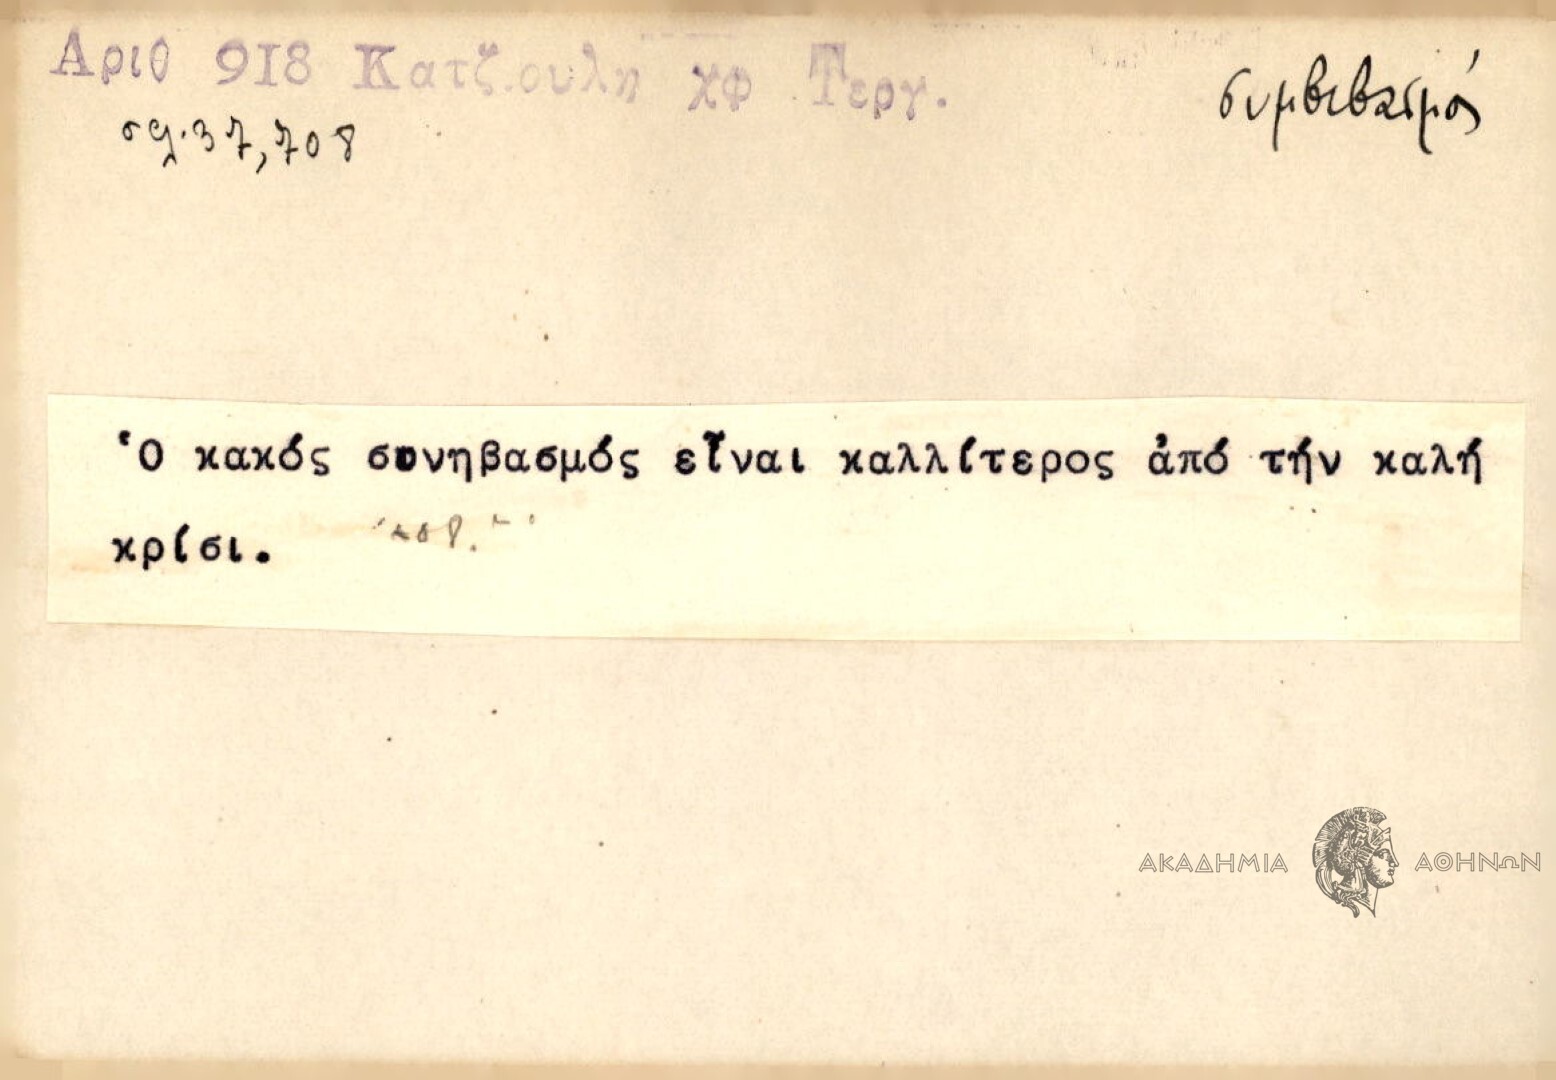 Αριθ 918 Κατζουλη χφ Τεργ.
συμβιβασμός
σελ. 37, 708
Ὁ κακός συνηβασμός εἶναι καλλίτερος ἀπό τήν καλή
κρίσι.
ΑΚΑΔΗΜΙΑ ΑΘΗΝΩΝ